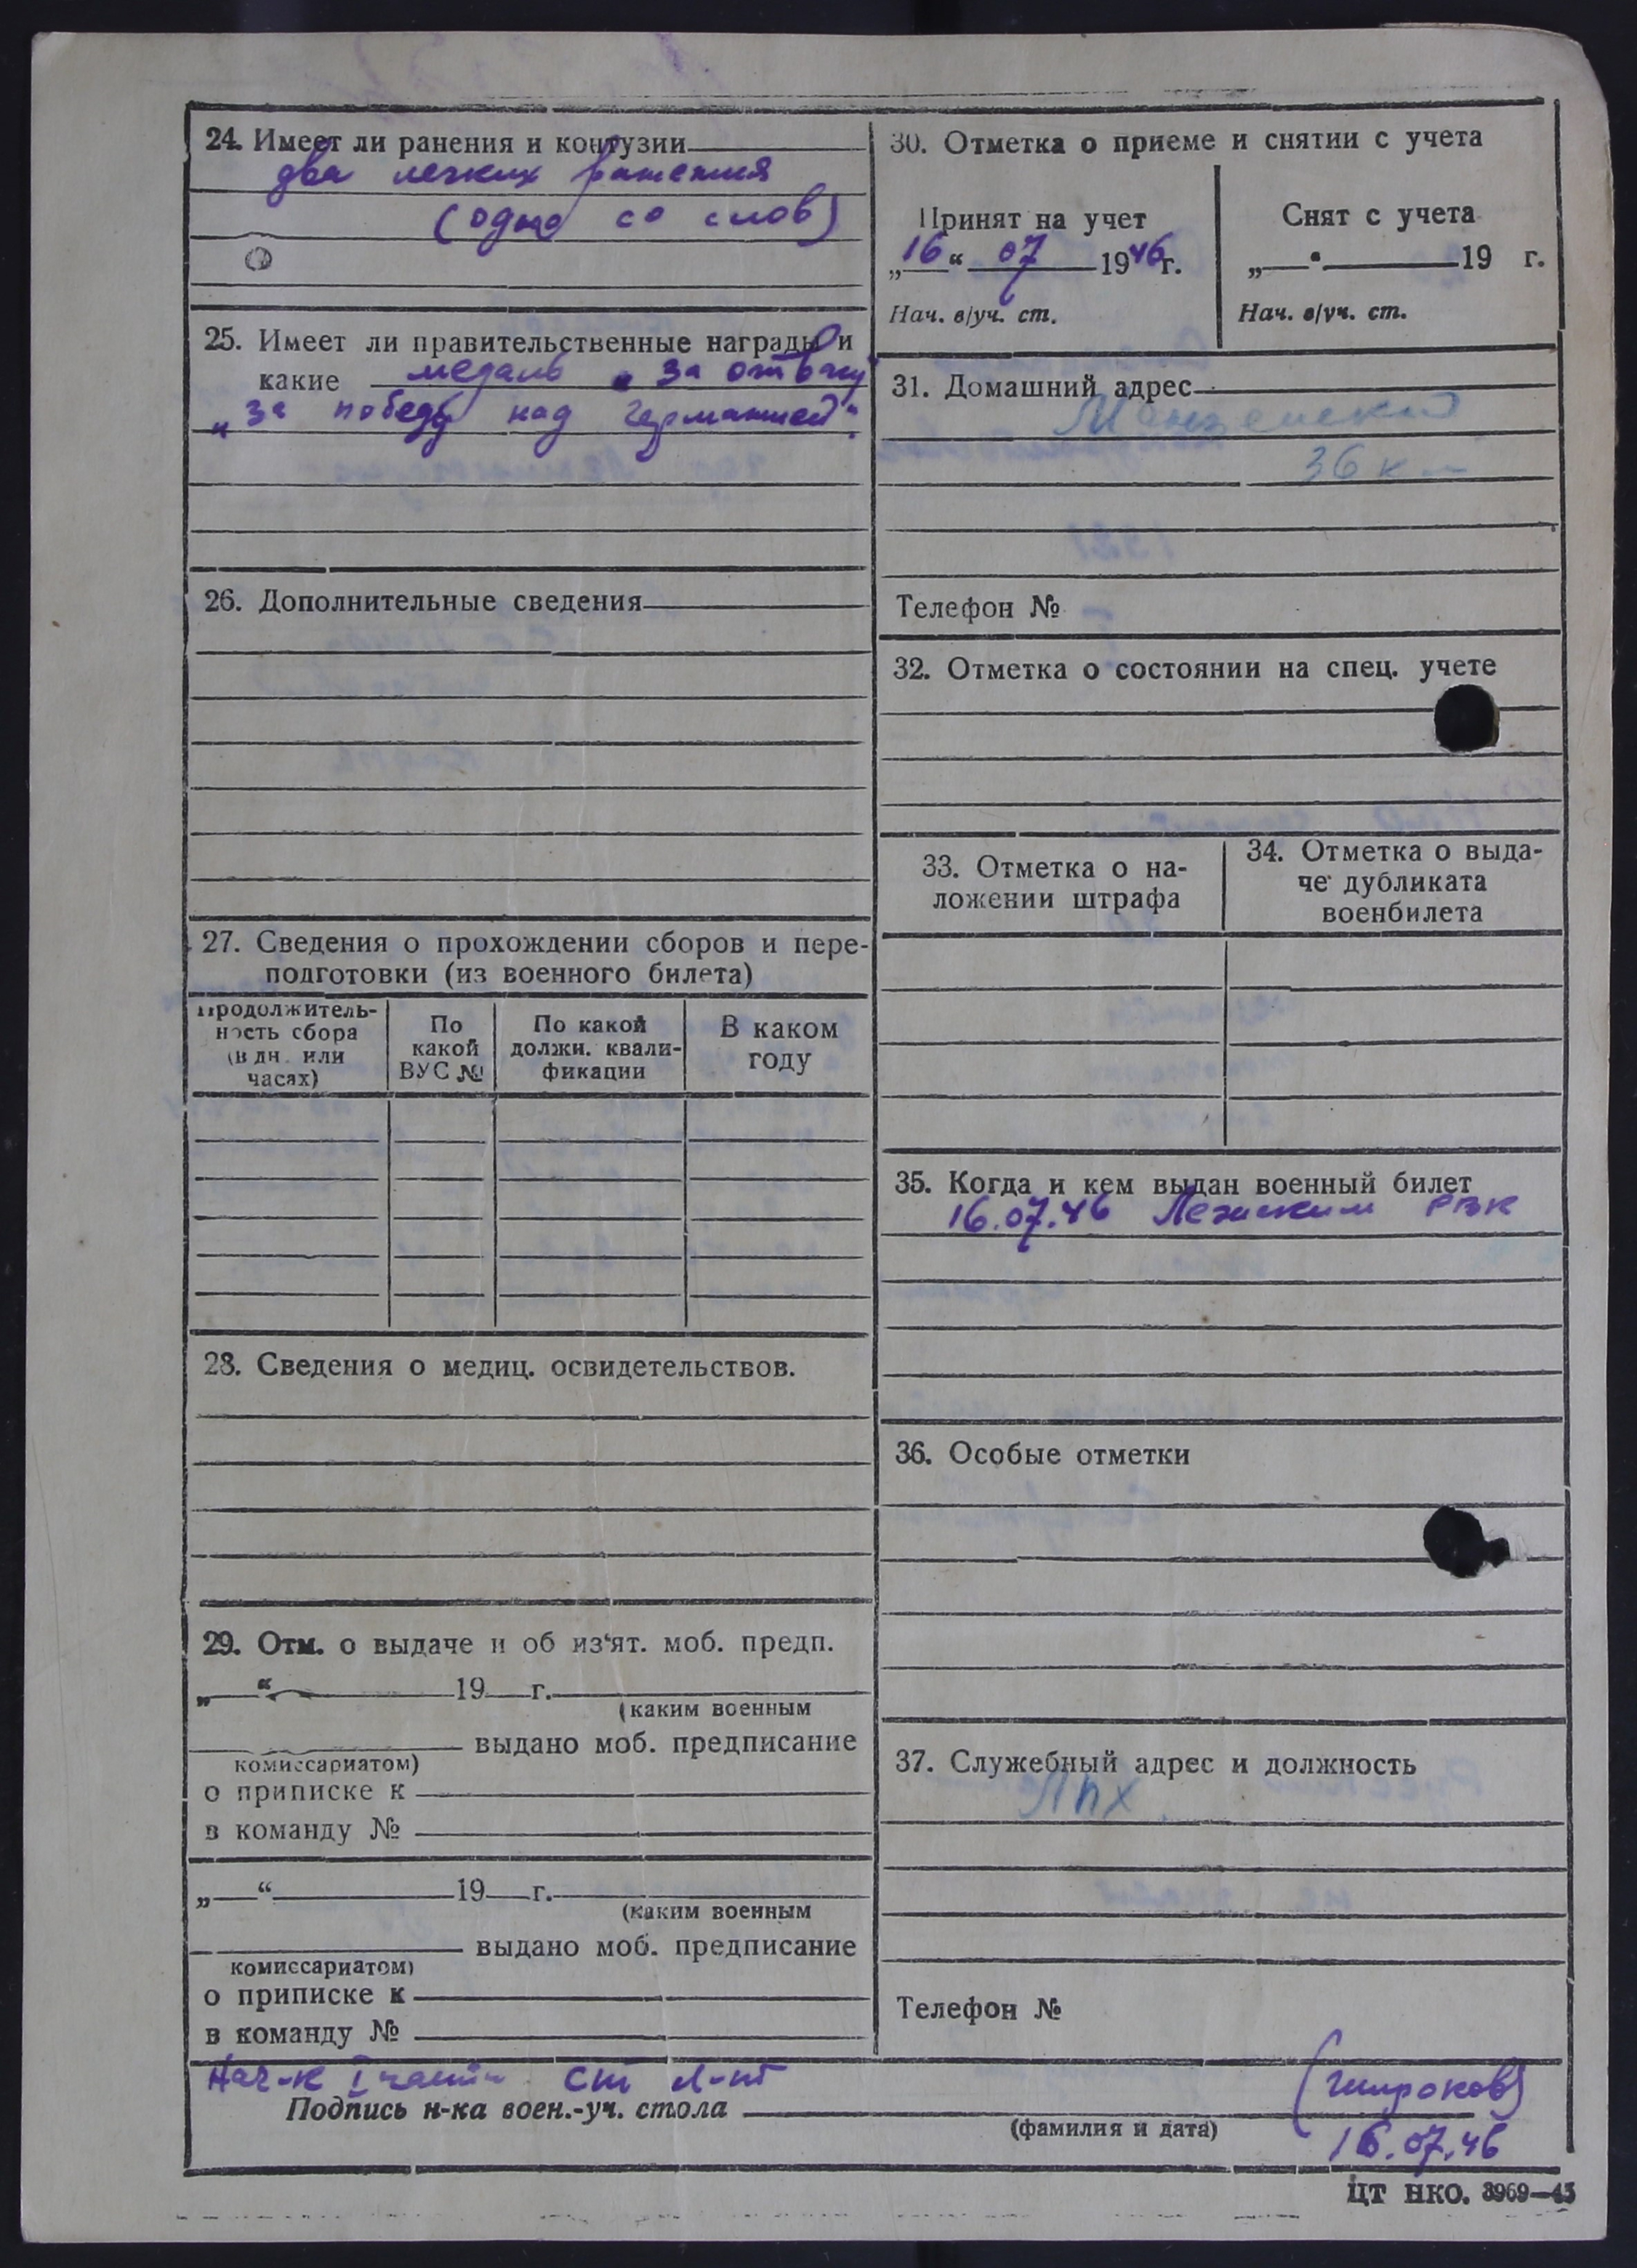 24. Имеет ли ранения и контузии
два легких ранения
(одно со слов)
25. Имеет ли правительственные награды и
какие медаль „За отвагу"
„за победу над Германией".
26. Дополнительные сведения
27. Сведения о прохождении сборов и пере-
подготовки (из военного билета)
Продолжитель-
ность сбора
(в дн. или
часах)
По
какой
ВУС №
По какой
должн. квали-
фикации
В каком
году
28. Сведения о медиц. освидетельствов.
29. Отм. о выдаче и об из'ят. моб. предп.
„ “ 19 г.
(каким военным
выдано моб. предписание
комиссариатом)
о приписке к
в команду №
„ “ 19 г.
(каким военным
выдано моб. предписание
комиссариатом)
о приписке к
в команду №
30. Отметка о приеме и снятии с учета
Принят на учет
„16“ 07 1946 г.
Нач. в/уч. ст.
Снят с учета
„ “ 19 г.
Нач. в/уч. ст.
31. Домашний адрес
36 км
Телефон №
32. Отметка о состоянии на спец. учете
33. Отметка о на-
ложении штрафа
34. Отметка о выда-
че дубликата
военбилета
35. Когда и кем выдан военный билет
16.07.46 РВК
36. Особые отметки
37. Служебный адрес и должность
ЛПХ
Телефон №
Нач-к I части ст л-нт
(Широков)
Подпись н-ка воен.-уч. стола
(фамилия и дата)
16.07.46
ЦТ НКО. 3969—45